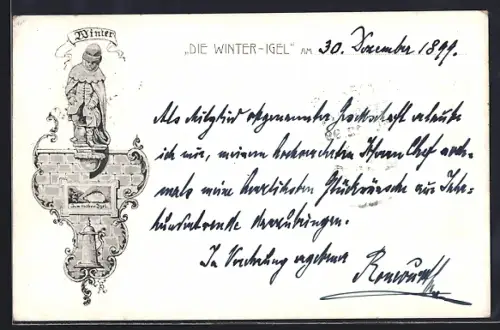 Winter
„DIE WINTER-IGEL" AM 30. Dezember 1899.
Als Mitglied obgenannter Gesellschaft erlaube
ich mir, meinem hochverehrten Herrn Chef noch-
mals meine herzlichsten Glückwünsche zur Jahr-
hundertwende darzubringen.
In Verehrung ergebenst